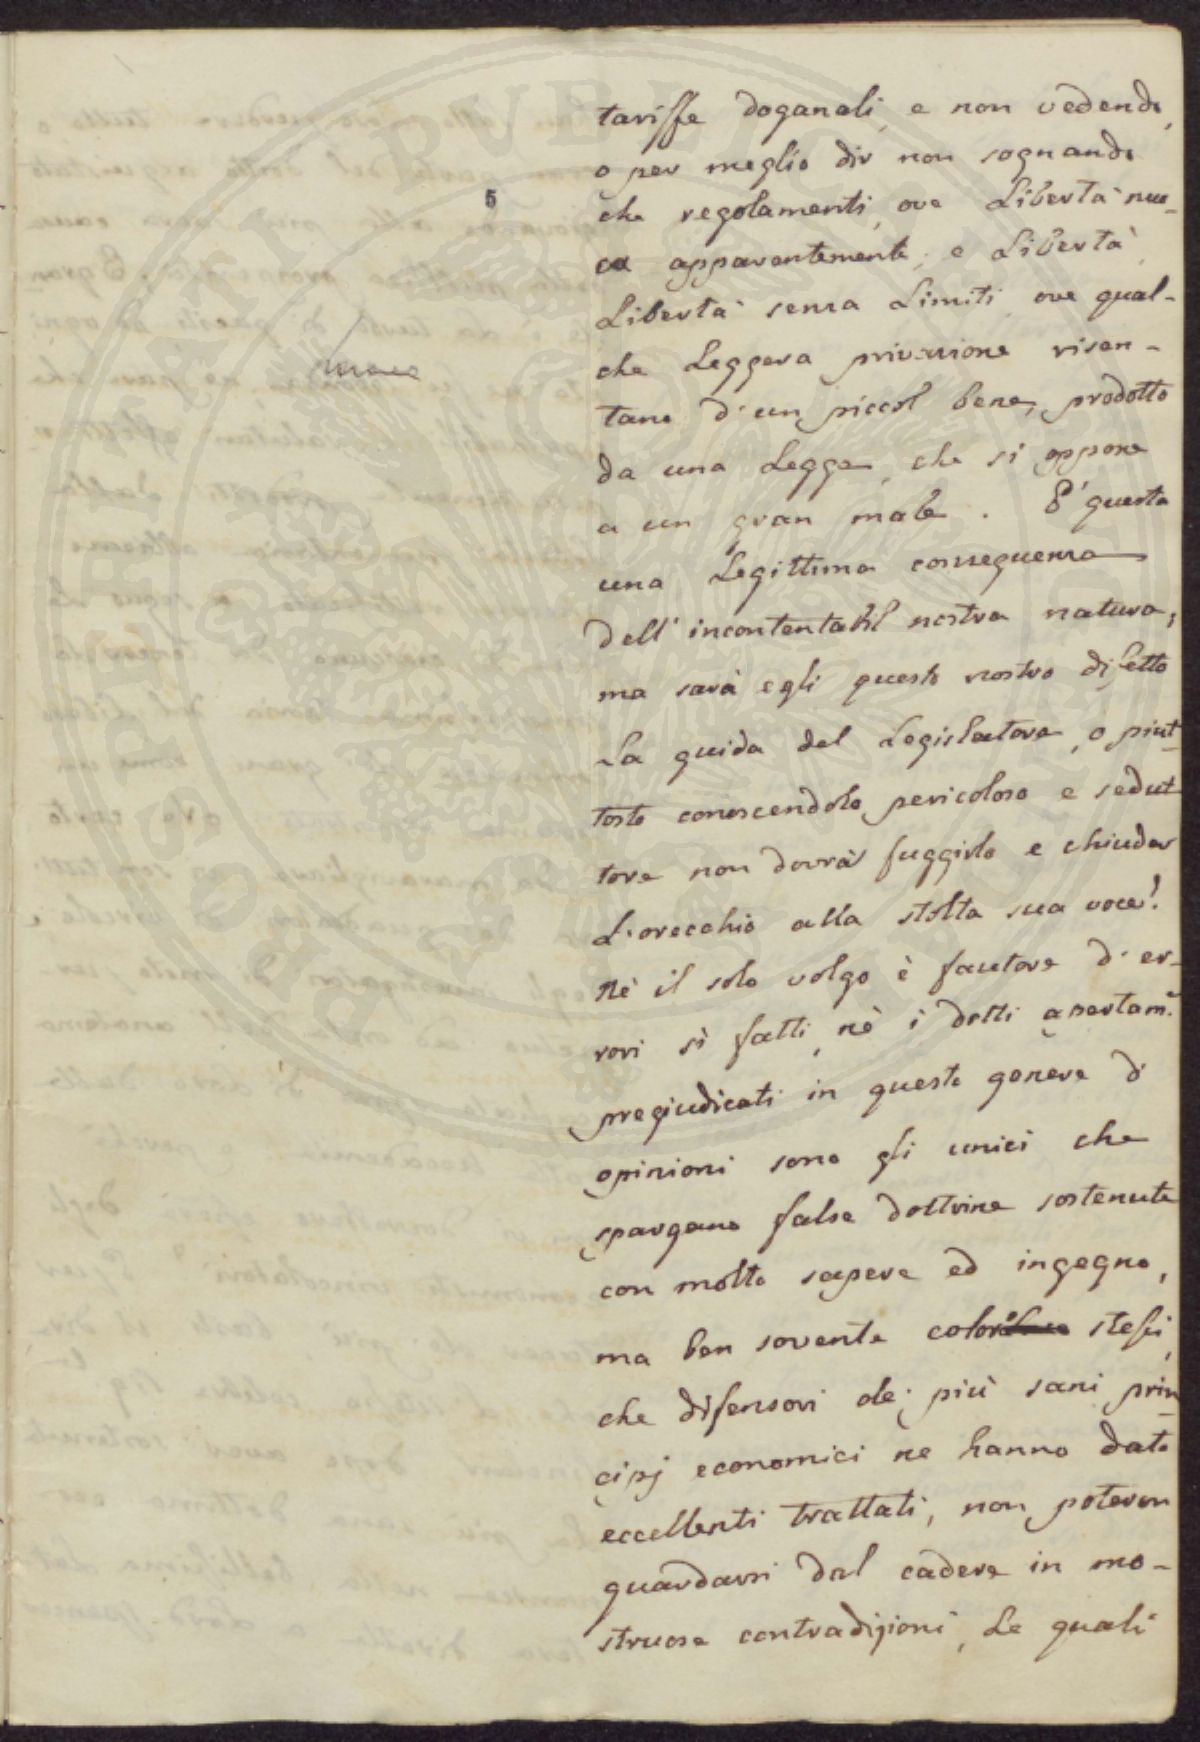 5
tariffe doganali, e non vedendo,
o per meglio dir non sognando
che regolamenti, ove Libertà nuo-
ce apparentemente, e Libertà,
Libertà senza Limiti ove qual-
che Leggera privazione risen-
tano d'un piccol bene, prodotto
da una Legge, che si oppone
a un gran male. E' questa
una Legittima conseguenza
dell' incontentabil nostra natura;
ma sarà egli questo nostro difetto
La guida del Legislatore, o piut-
tosto conoscendolo pericoloso e sedut
tore non dovrà fuggirlo e chiuder
L'orecchio alla stolta sua voce!
Nè il solo volgo è fautore d'er-
rori sì fatti, nè i dotti apertam.e
pregiudicati in questo genere di
opinioni sono gli unici che
spargano false dottrine sostenute
con molto sapere ed ingegno,
ma ben sovente coloro stessi,
che difensori de' più sani prin-
cipj economici ne hanno dato
eccellenti trattati, non poteron
guardarsi dal cadere in mo-
struose contradizioni, Le quali
PROSPERITATI PVBLICAE AVGENDAE